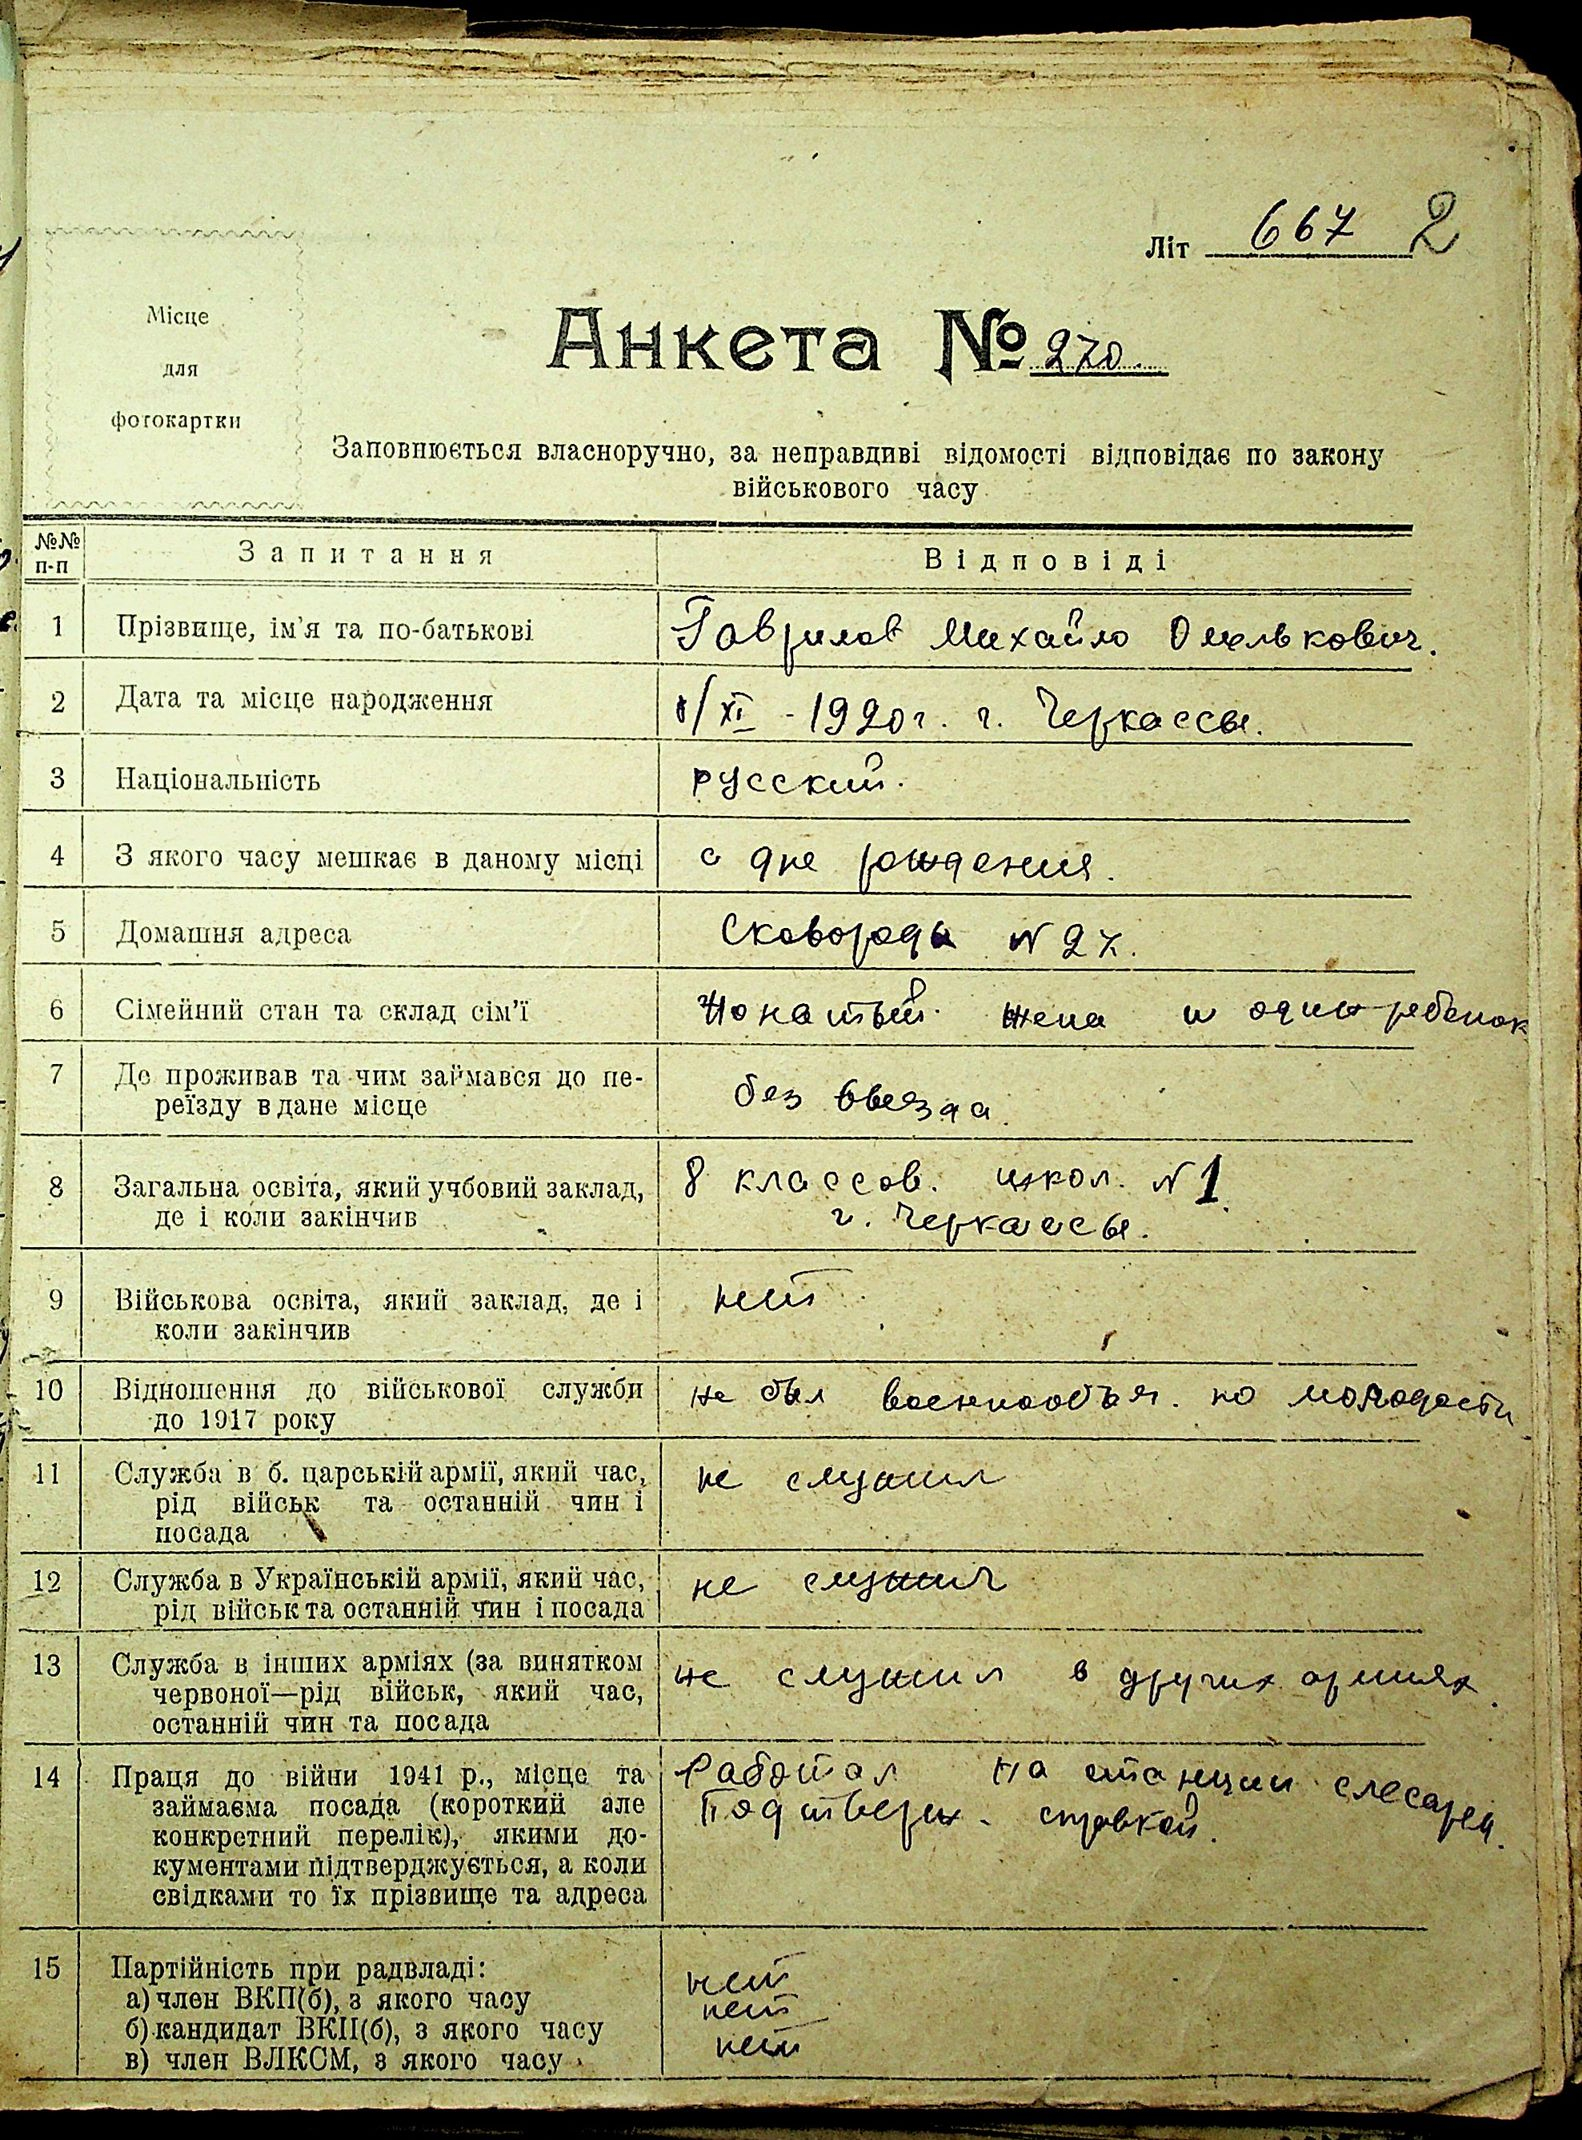 Літ 667 2
Місце
для
фотокартки
Анкета № 270.
Заповнюється власноручно, за неправдиві відомості відповідає по закону
військового часу
№№
п-п
Запитання
Відповіді
1 Прізвище, ім'я та по-батькові Гаврилов Михайло Омелькович.
2 Дата та місце народження /XI - 1920 г. г. Черкассы.
3 Національність русский.
4 З якого часу мешкає в даному місці с дне рождения.
5 Домашня адреса Сковороды N 27.
6 Сімейний стан та склад сім'ї Жонатый. жена и один ребенок
7 Де проживав та чим займався до пе-
реїзду в дане місце
без
8 Загальна освіта, який учбовий заклад,
де і коли закінчив
8 классов. школ. N 1.
г. Черкассы.
9 Військова освіта, який заклад, де і
коли закінчив
нет
10 Відношення до військової служби
до 1917 року
не был военнообяз. по молодости
11 Служба в б. царській армії, який час,
рід військ та останній чин і
посада
не служил
12 Служба в Українській армії, який час,
рід військ та останній чин і посада
не служил
13 Служба в інших арміях (за винятком
червоної—рід військ, який час,
останній чин та посада
не служил в других армиях.
14 Праця до війни 1941 р., місце та
займаєма посада (короткий але
конкретний перелік), якими до-
кументами підтверджується, а коли
свідками то їх прізвище та адреса
Работал на станции слесарем.
Подтверж. справкой.
15 Партійність при радвладі:
а) член ВКП(б), з якого часу нет
б) кандидат ВКП(б), з якого часу нет
в) член ВЛКСМ, з якого часу нет